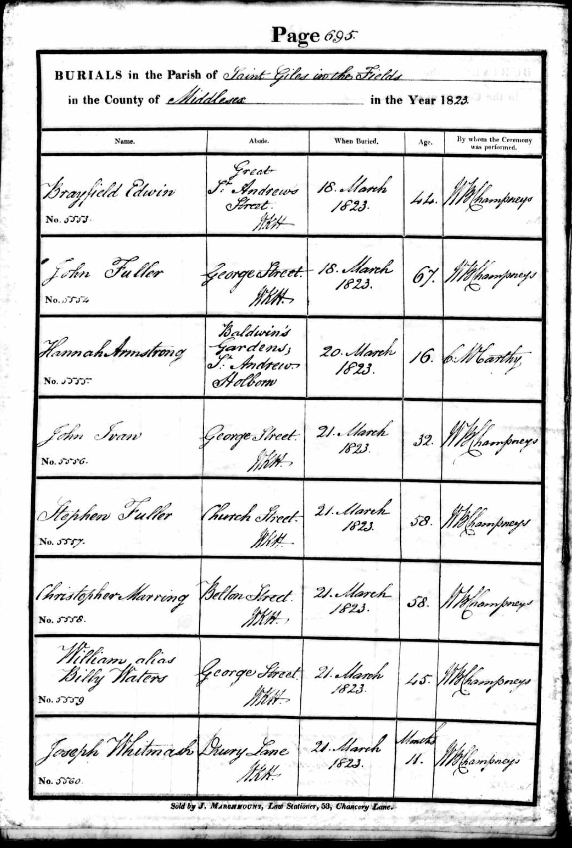 Page 695.
BURIALS in the Parish of Saint Giles in the Fields
in the County of Middlesex in the Year 1823.
Name. Abode. When Buried. Age. By whom the Ceremony was performed.
Brayfield Edwin
No. 5553.
Great
St. Andrews
Street.
WKH.
18. March
1823.
44.
WB Champneys
John Fuller
No. 5554
George Street.
WKH.
18. March
1823.
67.
WB Champneys
Hannah Armstrong
No. 5555.
Baldwin's
Gardens,
St. Andrew
Holborn
20. March
1823.
16.
C McCarthy
John Ivan
No. 5556.
George Street.
WKH.
21. March
1823.
32.
WB Champneys
Stephen Fuller
No. 5557.
Church Street.
WKH.
21. March
1823.
58.
WB Champneys
Christopher Marring
No. 5558.
Belton Street.
WKH.
21. March
1823.
58.
WB Champneys
William alias
Billy Waters
No. 5559
George Street.
WKH.
21. March
1823.
45.
WB Champneys
Joseph Whitmash
No. 5560.
Drury Lane
WKH.
21. March
1823.
Months
11.
WB Champneys
Sold by J. MARCHMOUNT, Law Stationer, 53, Chancery Lane.